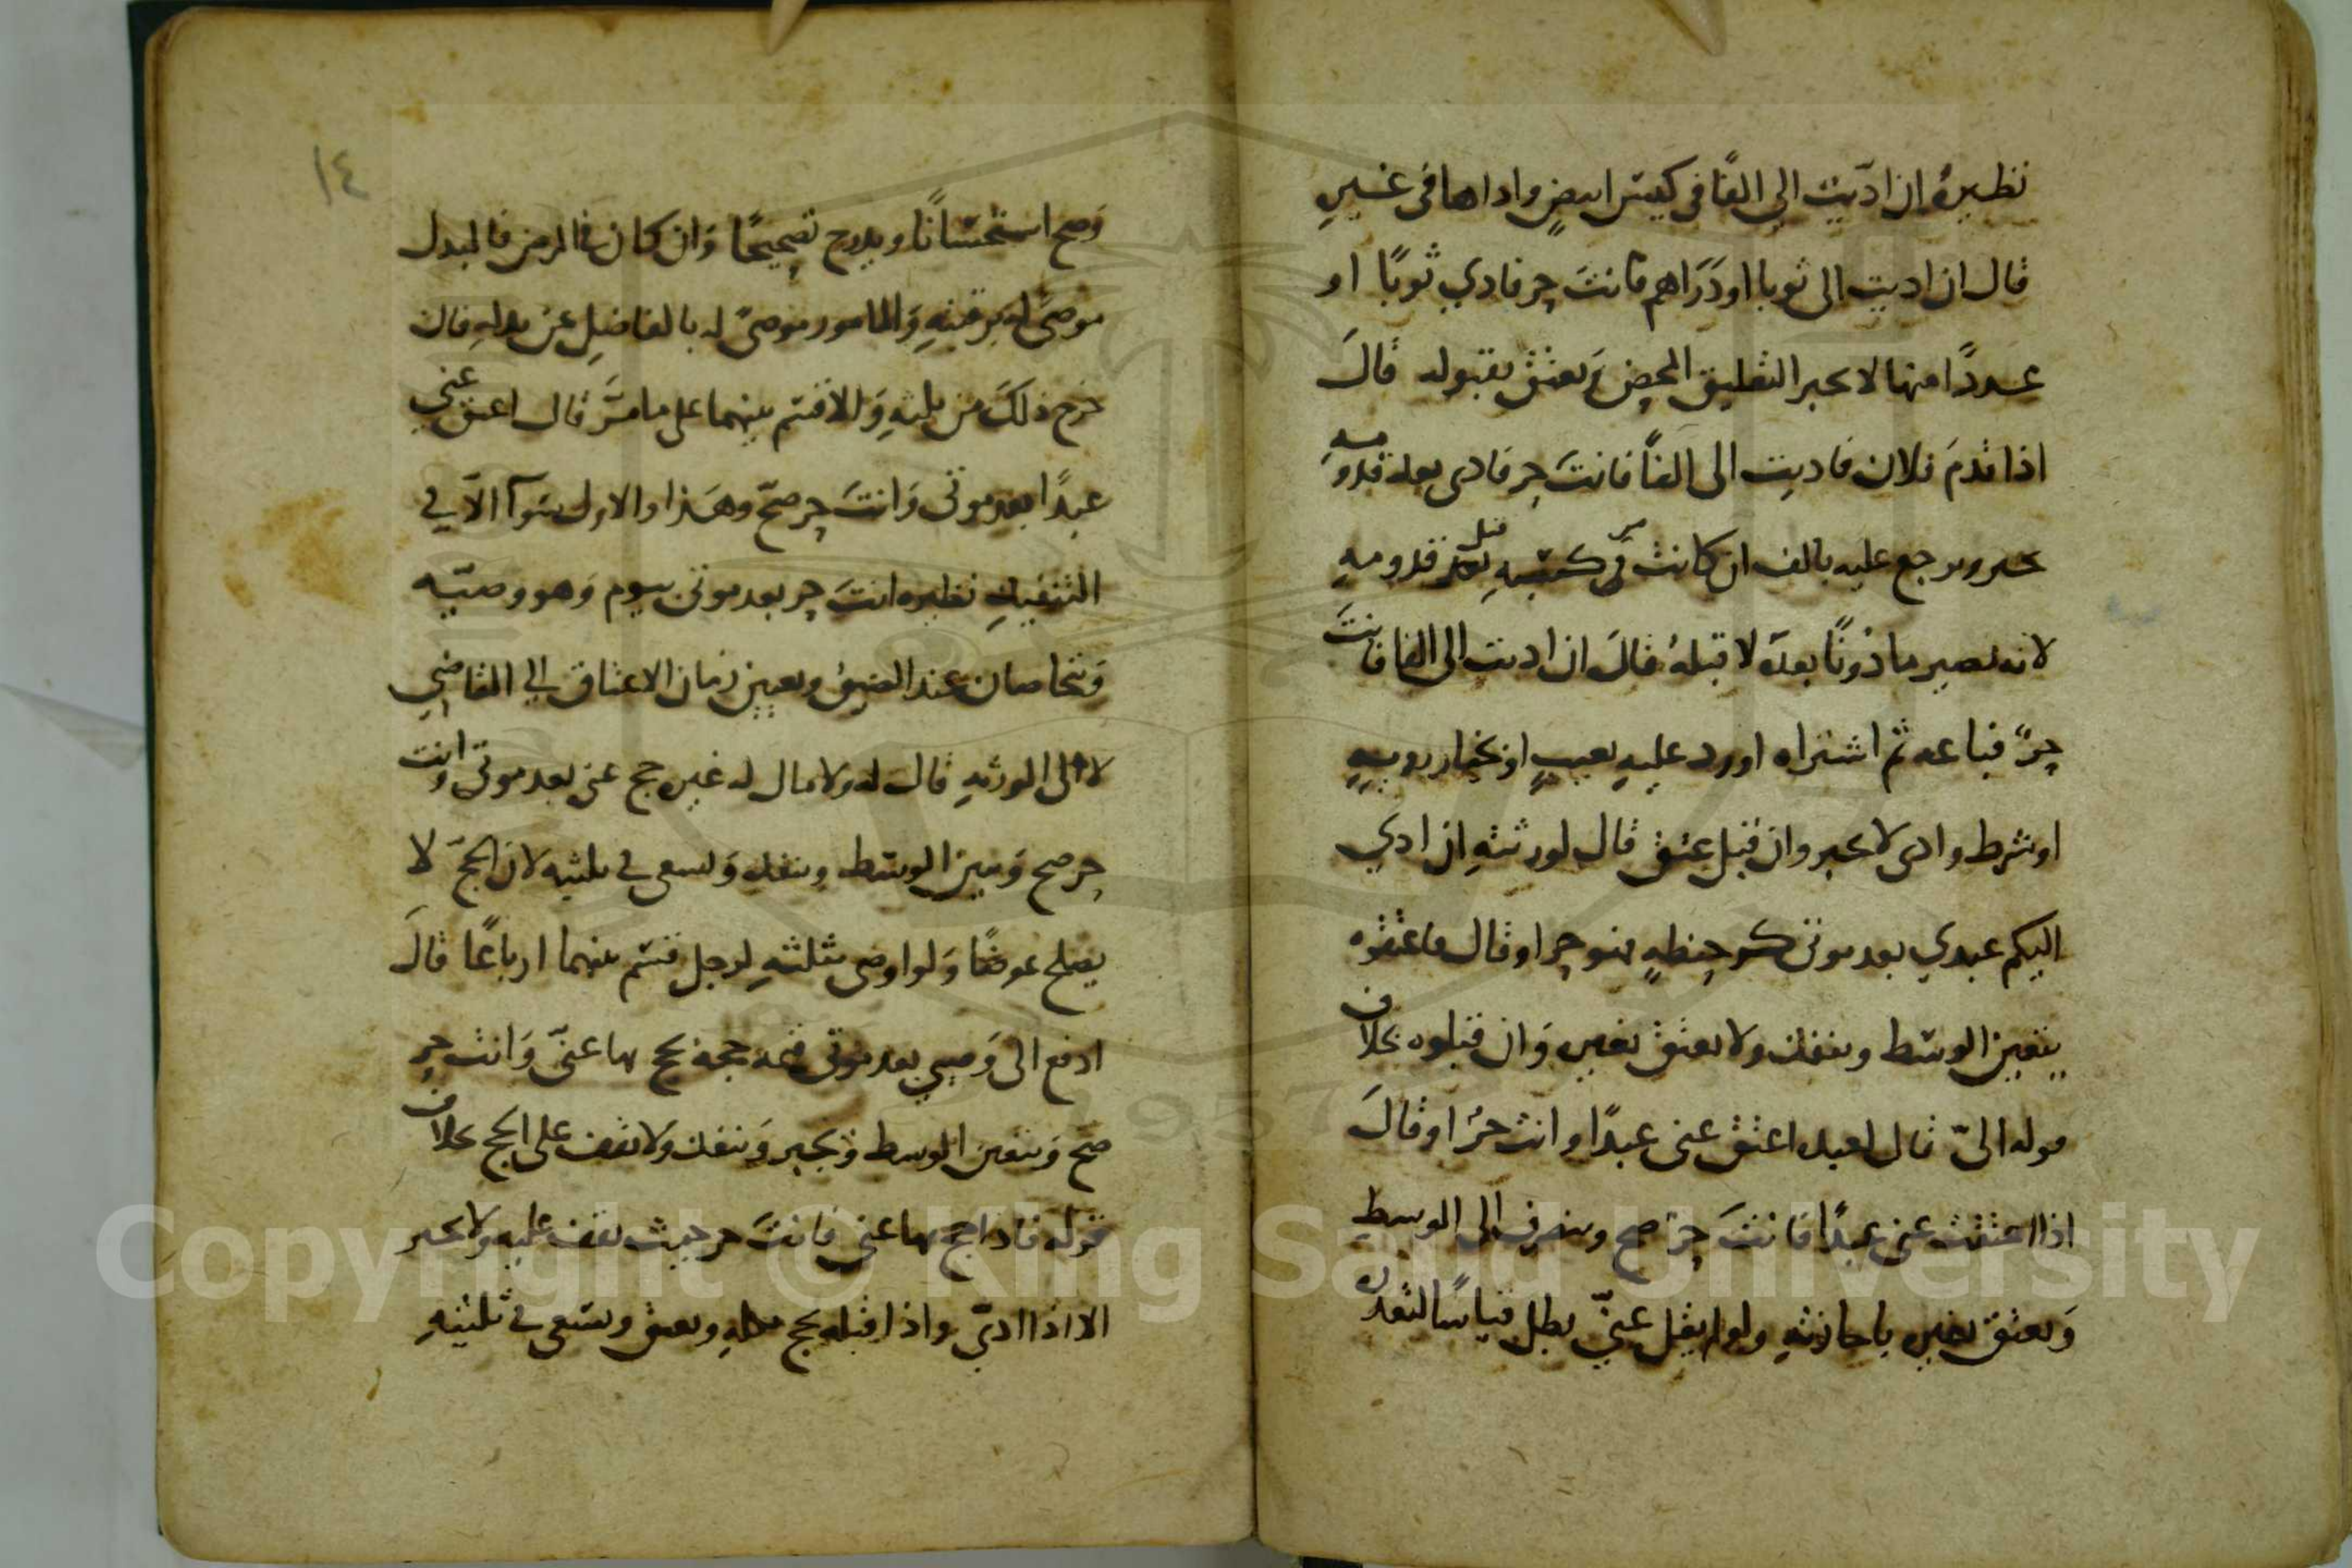 نظيره ان ادّيت الي الفًا في كيس ابيضٍ واداها في غيرِ
قال ان اديت الى ثوبا او دَرَاهم فانتَ حر فادي ثوبًا او
عددًا منها لا يجبر التعليق المحض وَيعتق بقبوله قالَ
اذا قدمَ فلان فاديت الى الفاً فانتَ حر فادى بعد قدومهِ
يجبر ويرجع عليه بالف ان كانت من كسبهِ قبل قدومهِ
لانه يصير ماذونًا بعدَه لا قبلهُ قالَ ان اديت الى الفا فانتَ
حرٌ فباعه ثم اشتراه او رد عليهِ بعيبٍ او بخيار رويةٍ
او شرط وادى لا يجبر وان قبل عتق قال لورثتهِ ان ادي
اليكم عبدي بعد موتى كر حنطهٍ فهو حر او قال فاعتقوه
يتعين الوسط وينفك ولا يعتق بغيره وَان قبلوه بخلاف
قوله الىّ قال لعبده اعتق عنى عبدًا وانت حرٌ او قالَ
اذا اعتقت عنى عبدًا فانتَ حرٌ صح وينصرف الى الوسطِ
وَيعتق بغيره باجازتهِ ولو لم يقل عنيّ بطل قياسًا لتعذره
١٤
وَصح استحسانًا ويدرج تصحيحًا وَان كان في المرض فالمبدل
موصىً له برقبتهِ وَالمامور موصىً له بالفاضلِ عن بدلهِ فان
خرج ذلكَ من ثلثهِ وَالا قسم بينهما على ما مرَّ قال اعتق عني
عبدًا بعد موتى وَانتَ حر صحّ وهَذا والاول سَوآ الّا في
التنفيذِ نظيره انتَ حر بعد موتى بيوم وَهو وصيّه
وَيتخاصمان عند الضيق ويعين زمان الاعتاق الي القاضِي
لا الى الورثهِ قال له ولا مال له غيره حج عنى بعد موتى وانت
حر صح وَيتعين الوسَط وينفك وَيسعى في ثلثيه لانّ الحجَّ لا
يصلح عوضًا وَلو اوصى بثلثهِ لرجل قسّم بينهما ارباعًا قالَ
ادفع الى وَصيي بعد موتى قيمة حجة يحج بها عنىّ وَانت حر
صَح وَيتعين الوسط وَيجبر وَينفك وَلا يقف على الحج بخلاف
قوله فاذا حج بها عنى فانتَ حر حيث يقف عليهِ ولا يجبر
الا اذا ادىّ واذا قبله يحج بكلهِ ويعتق ويسَعى في ثلثيهِ